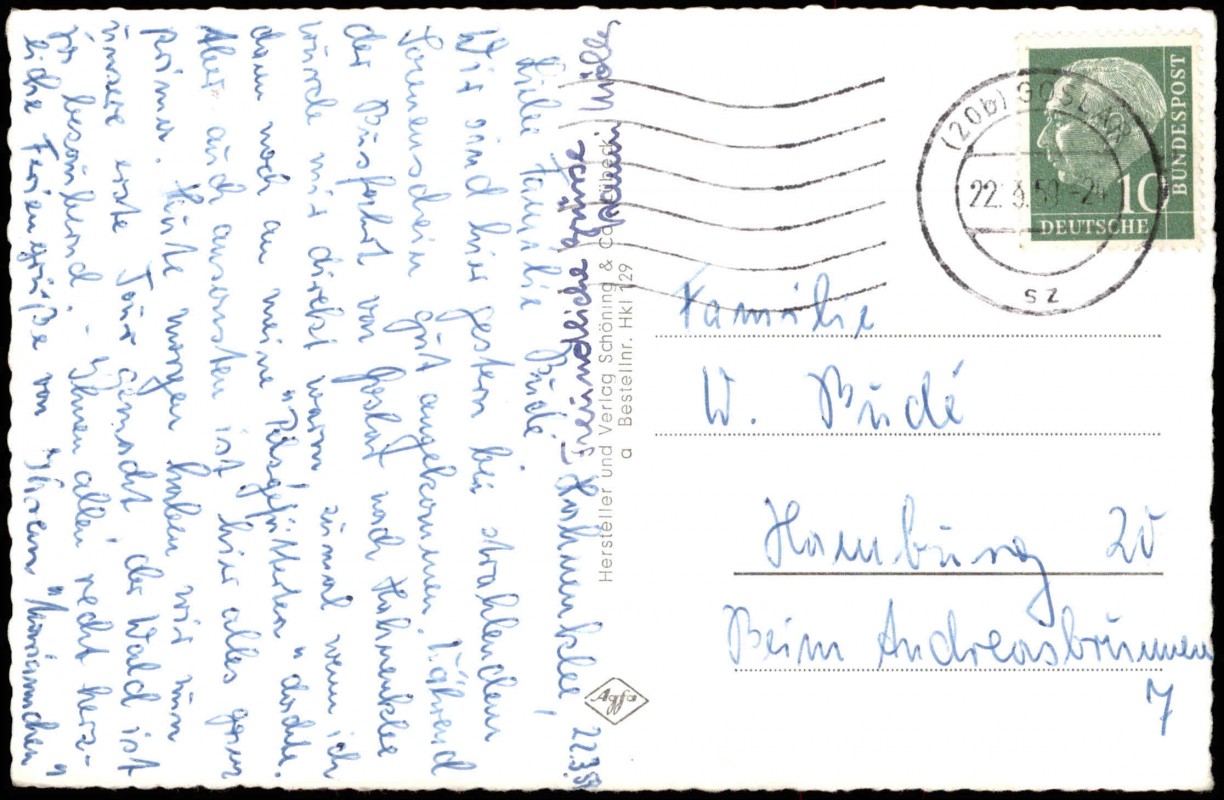 Hahnenklee, 22.3.59
Liebe Familie Budé!
Wir sind hier gestern bei strahlendem
Sonnenschein gut angekommen. Während
der Busfahrt von Goslar nach Hahnenklee
wurde mir direkt warm, zumal wenn ich
dann noch an meine "Pelsgefütterten" dachte.
Aber auch ansonsten ist hier alles ganz
prima. Heute morgen haben wir nun
unsere erste Tour gemacht der Wald ist
ja bezaubernd. - Ihnen allen recht herz-
liche Feriengrüße von Ihrem "Mariannchen"
Freundliche Grüsse
Hersteller und Verlag Schöning & Co., Lübeck
a Bestellnr. Hkl 129
Agfa
(20b) GOSLAR
22.3.59-24
SZ
10
DEUTSCHE
BUNDESPOST
Familie
W. Budé
Hamburg 20
Beim Andreasbrunnen
7